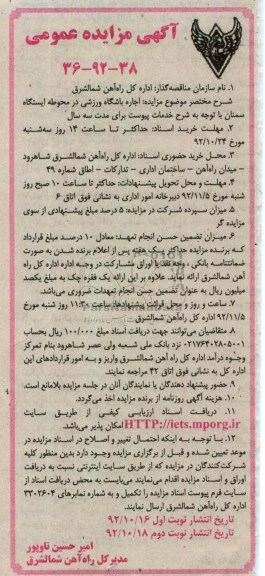 آگهی مزایده عمومی
۳۶-۹۲-۳۸
۱. نام سازمان مناقصه‌گذار: اداره کل راه‌آهن شمالشرق
شرح مختصر موضوع مزایده: اجاره باشگاه ورزشی در محوطه ایستگاه
سمنان با توجه به شرح خدمات پیوست برای مدت سه سال
۲. مهلت خرید اسناد: حداکثر تا ساعت ۱۴ روز سه‌شنبه
مورخ ۹۲/۱۰/۲۴
۳. محل خرید حضوری اسناد: اداره کل راه‌آهن شمالشرق شاهرود
- میدان راه‌آهن - ساختمان اداری - تدارکات - اطاق شماره ۴۹
۴. مهلت و محل تحویل پیشنهادات: حداکثر تا ساعت ۱۰ صبح روز
شنبه مورخ ۹۲/۱۱/۵ دبیرخانه امور اداری به نشانی فوق اتاق ۶
۵. میزان سپرده شرکت در مزایده: ۵ درصد مبلغ پیشنهادی از سوی
مزایده گر
۶. میزان تضمین حسن انجام تعهد: معادل ۱۰ درصد مبلغ قرارداد
که برنده مزایده حداکثر یک هفته پس از اعلام برنده شدن به صورت
ضمانتنامه بانکی، وجه نقد یا اوراق مشارکت در وجه اداره کل راه
آهن شمالشرق ارائه نماید. علاوه بر این ارائه یک فقره چک به مبلغ یکصد
میلیون ریال به عنوان تضمین حسن انجام تعهدات ضروری می‌باشد.
۷. ساعت و روز و محل قرائت پیشنهادها: ساعت ۱۱:۳۰ روز شنبه مورخ
۹۲/۱۱/۵ اداره کل راه‌آهن شمالشرق
۸. متقاضیان می‌توانند جهت دریافت اسناد مبلغ ۱۰۰/۰۰۰ ریال بحساب
۰۲۱۷۶۴۰۲۸۵۰۰۱ نزد بانک ملی شعبه ولی عصر شاهرود بنام تمرکز
وجوه درآمد اداره کل راه آهن شمالشرق واریز و به امور قراردادهای این
اداره کل به نشانی فوق اتاق ۴۲ مراجعه نمایند.
۹. حضور پیشنهاد دهندگان یا نمایندگان آنان در جلسه مزایده بلامانع است.
۱۰. هزینه آگهی روزنامه از برنده مزایده اخذ می‌گردد.
۱۱. دریافت اسناد ارزیابی کیفی از طریق سایت
HTTP://iets.mporg.ir امکان پذیر می‌باشد.
۱۲. با توجه به اینکه احتمال تغییر و اصلاح در اسناد مزایده در
موعد تعیین شده و قبل از برگزاری مزایده وجود دارد بدین منظور کلیه
شرکت‌کنندگان در مزایده که از طریق سایت اینترنتی نسبت به دریافت
اوراق و اسناد مزایده اقدام می‌نمایند می‌بایست به محض دریافت اسناد از
سایت فرم پیوست اسناد مزایده را تکمیل و به شماره نمابرهای ۳۳۰۲۶۰۴
اداره کل راه‌آهن شمالشرق ارسال نمایند.
تاریخ انتشار نوبت اول ۹۲/۱۰/۱۶
تاریخ انتشار نوبت دوم ۹۲/۱۰/۱۸
امیر حسین ناوپور
مدیرکل راه‌آهن شمالشرق